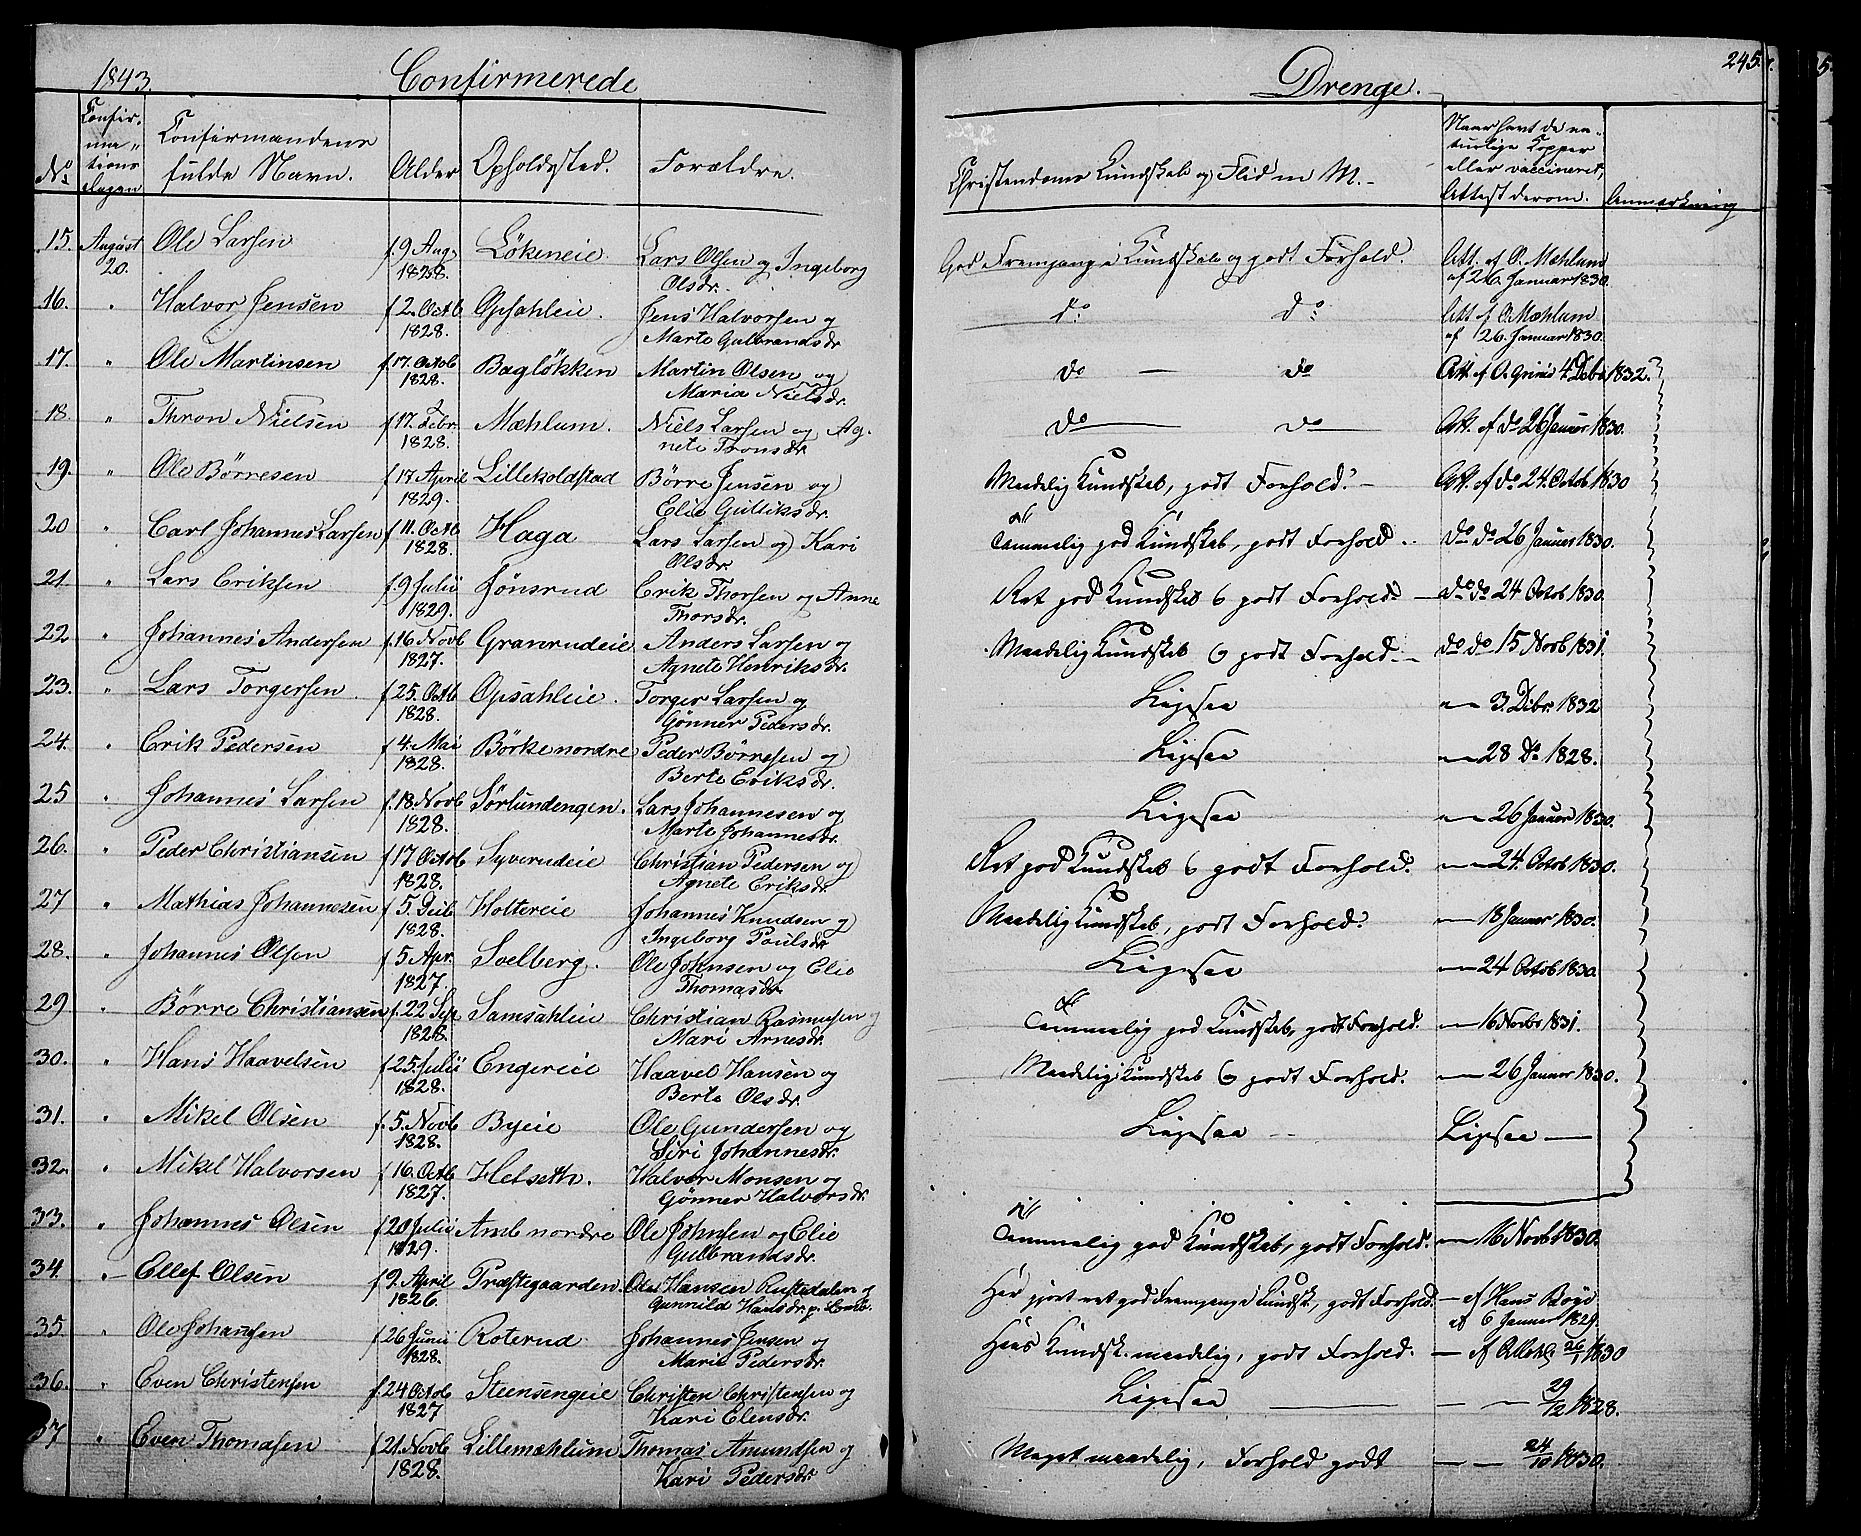 1843. Confirmerede
Drenge. 245.
No
Confir-
ma-
tions
dagen
Confirmandens
fulde Navn.
Alder
Opholdssted.
Forældre.
Christendoms Kundskab og Flid m M.
Naar havt de na-
turlige Kopper
eller vaccineret,
Attest derom.
Anmærkning
15. August 20. Ole Larsen f. 9 Aug. 1828. Lökeneie Lars Olsen og Ingeborg Olsdr. God Fremgang i Kundskab og godt Forhold. Att. af O. Mæhlum af 26. Januar 1830.
16. " Halvor Jensen f 2. Octb 1828. Opsahleie. Jens Halvorsen og Marte Gulbrandsdr do do Att af O. Mæhlum af 26. Januar 1830.
17. " Ole Martinsen f. 17. Octob 1828. Baglökken Martin Olsen og Maria Nielsdr. do — do Att. af O. 4 Debr 1832.
18. " Thron Nielsen f 17. Febr. 1828. Mæhlum. Niels Larsen og Agnete Tronsdr. do do Att. af do 26 Januar 1830.
19. " Ole Börresen f 17 April 1829. Lillekoldstad Börre Jensen og Elie Gulliksdr. Maadelig Kundskab, godt Forhold. Att. af do 24. Octob 1830
20 " Carl Johannes Larsen f 11. Octb 1828. Haga Lars Larsen og Kari Olsdr Temmelig god Kundskab, godt Forhold. do do 26 Januar 1830.
21 " Lars Eriksen f. 9 Julii 1829. Jönsrud Erik Thorsen og Anne Thorsdr. Ret god Kundskab & godt Forhold — do do 24 Octob 1830.
22 " Johannes Andersen f. 16 Novb 1827. Gravrudeie Anders Larsen og Agnete Henriksdr. Maadelig Kundskab & godt Forhold — do do 15 Novb 1831.
23. " Lars Torgersen f 25. Octb 1828. Opsahleie. Torger Larsen og Gönner Pedersdr. Ligesaa — 3. Debr. 1832
24. " Erik Pedersen f 4. Mai 1828. Börke nordre Peder Börresen og Berte Eriksdr. Ligesaa — 28 do 1828.
25 " Johannes Larsen f. 18. Novb 1828. Sörlundengen. Lars Johannesen og Marte Johannesdr. Ligesaa — 26 Januar 1830.
26. " Peder Christiansen f 17 Octob 1828. Syverudeie Christian Pedersen og Agnete Eriksdr Ret god Kundskab & godt Forhold. — 24. Octob 1830.
27 " Mathias Johannesen f 5. Deib 1828. Holtereie Johannes Knudsen og Ingeborg Poulsdr Maadelig Kundskab, godt Forhold. — 18 Januar 1830.
28. " Johannes Olsen f 5 Apr. 1827. Soelberg. Ole Johnsen og Elie Thomasdr. Ligesaa — 24 Octob 1830.
29 " Börre Christiansen f. 22 Sep 1828. Samsahleie Christian Rasmussen og Mari Arnesdr. Temmelig god Kundskab, godt Forhold. — 16 Novbr 1831.
30. " Hans Haavelsen f 25. Julii 1828. Engereie Haavel Hansen og Berte Olsdr. Maadelig Kundskab & godt Forhold. — 26 Januar 1830.
31. " Mikel Olsen f. 5. Novb 1828. Byeie Ole Gundersen og Siri Johannesdr. Ligesaa — Ligesaa —
32. " Mikel Halvorsen f 16. Octb 1827. Helseth. Halvor Monsen og Gönner Halvorsdr.
33. " Johannes Olsen f 20 Julii 1829. Amb nordre Ole Johnsen og Elie Gulbrandsdr. Temmelig god Kundskab, godt Forhold. — 16 Novb 1830.
34. " Ellef Olsen f 2. April 1826. Præstegaarden. Ole Hansen Rustadalen og Gunnild Hansdr. Har gjort ret god Fremgang i Kundsk., godt Forhold. — af Hans af 6 Januar 1829.
35. " Ole Johansen f 26 Junii 1828. Roterud Johannes Jensen og Marie Pedersdr. Hans Kundsk. maadelig, godt Forhold. — af 26/1 1830
36. " Even Christensen f. 24 Octob 1827 Steensengeie Christen Christensen og Kari Elensdr. Ligesaa — — 29/12 1828.
37 " Even Thomasen f 21. Novb 1828. Lillemæhlum Thomas Amundsen og Kari Pedersdr Meget maadelig, Forhold godt — — 24/10 1830.